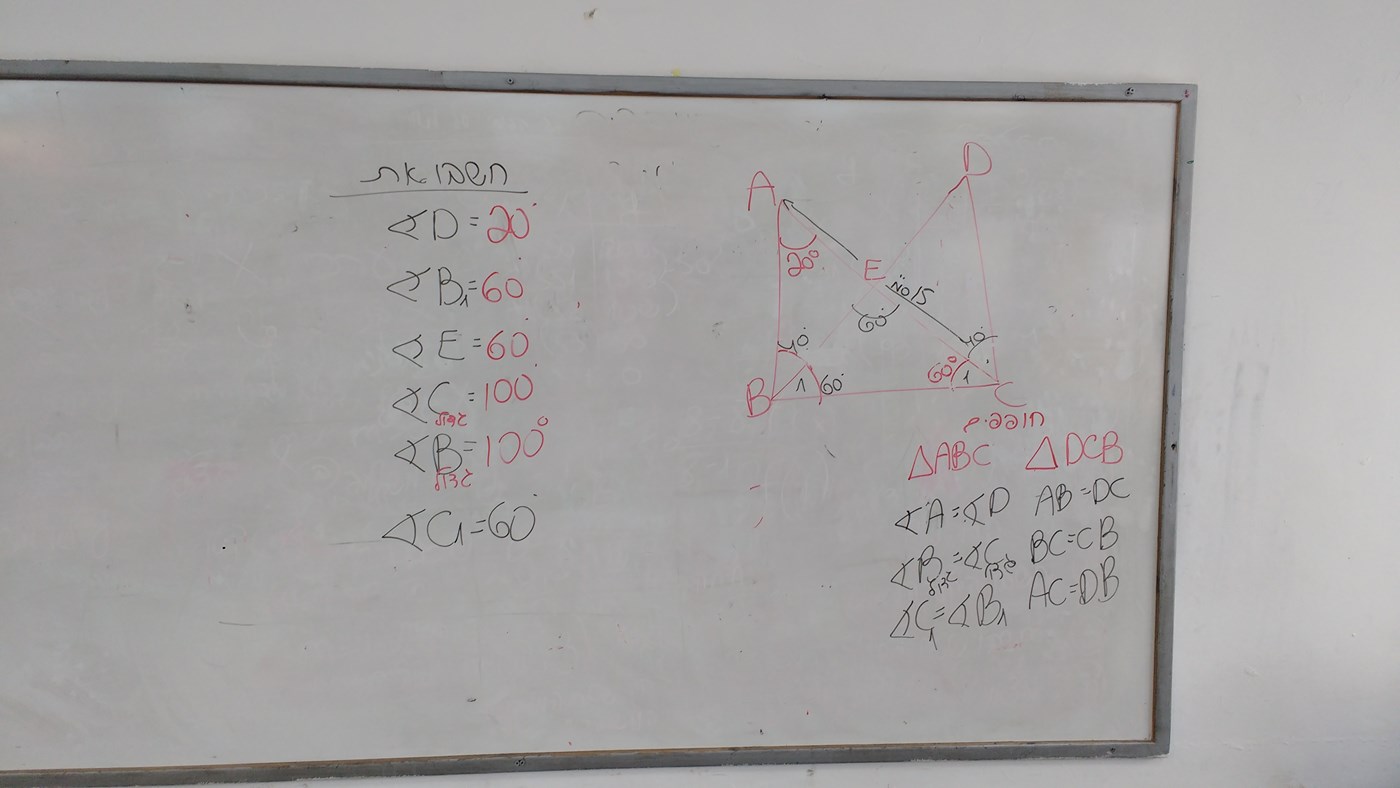 חשבו את
∢D = 20°
∢B₁ = 60
∢E = 60
∢C = 100
גדול
∢B = 100°
גדול
∢C₁ = 60°
A
D
20°
E
60°
40°
40°
B
1
60°
60°
1
C
חופפים
△ABC △DCB
∢A = ∢D AB = DC
∢B גדול = ∢C גדול BC = CB
∢C₁ = ∢B₁ AC = DB